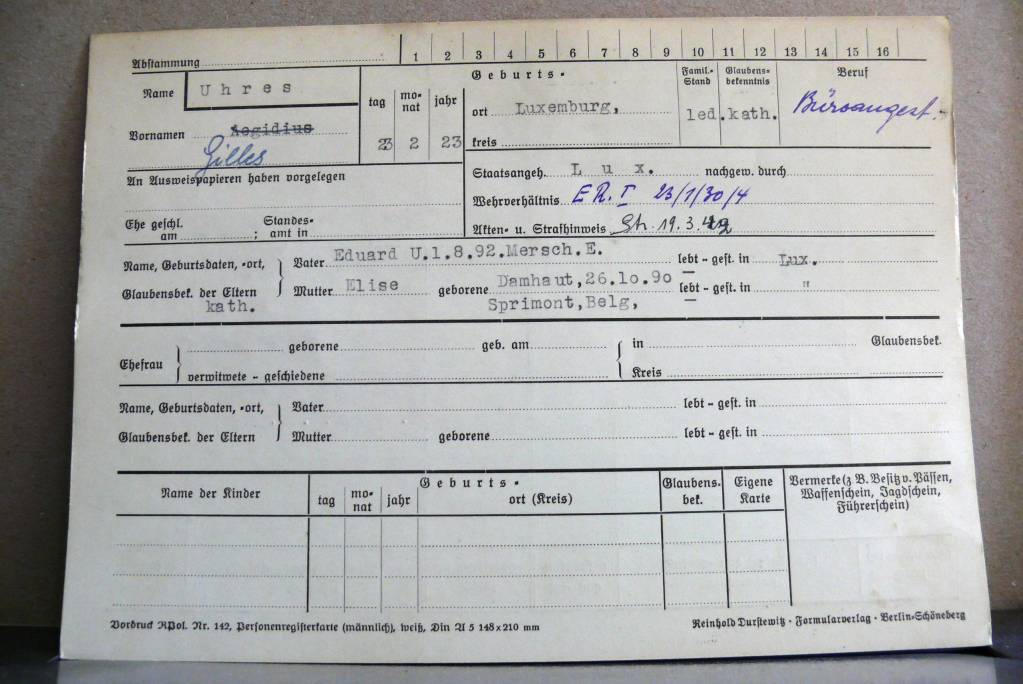 Abstammung 1 2 3 4 5 6 7 8 9 10 11 12 13 14 15 16
Name Uhres
Vornamen Aegidius
Gilles
tag monat jahr
23 2 23
Geburts-
ort Luxemburg,
kreis
Famil.-Stand
led.
Glaubensbekenntnis
kath.
Beruf
Büroangest.
An Ausweispapieren haben vorgelegen
Staatsangeh. Lux. nachgew. durch
Wehrverhältnis ER. I 23/1/30/4
Ehe geschl. am ; Standesamt in
Akten- u. Strafhinweis 19.3.
Name, Geburtsdaten, -ort, Vater Eduard U.1.8.92.Mersch.E. lebt - gest. in Lux.
Glaubensbek. der Eltern Mutter Elise geborene Damhaut,26.10.90 lebt - gest. in "
kath. Sprimont,Belg,
Ehefrau geborene geb. am in Glaubensbek.
verwitwete - geschiedene Kreis
Name, Geburtsdaten, -ort, Vater lebt - gest. in
Glaubensbek. der Eltern Mutter geborene lebt - gest. in
Name der Kinder
Geburts-
tag monat jahr ort (Kreis)
Glaubens. bek.
Eigene Karte
Vermerke (z B. Besitz v. Pässen,
Waffenschein, Jagdschein,
Führerschein)
Vordruck RPol. Nr. 142, Personenregisterkarte (männlich), weiß, Din A 5 148x210 mm
Reinhold Durstewitz · Formularverlag · Berlin-Schöneberg